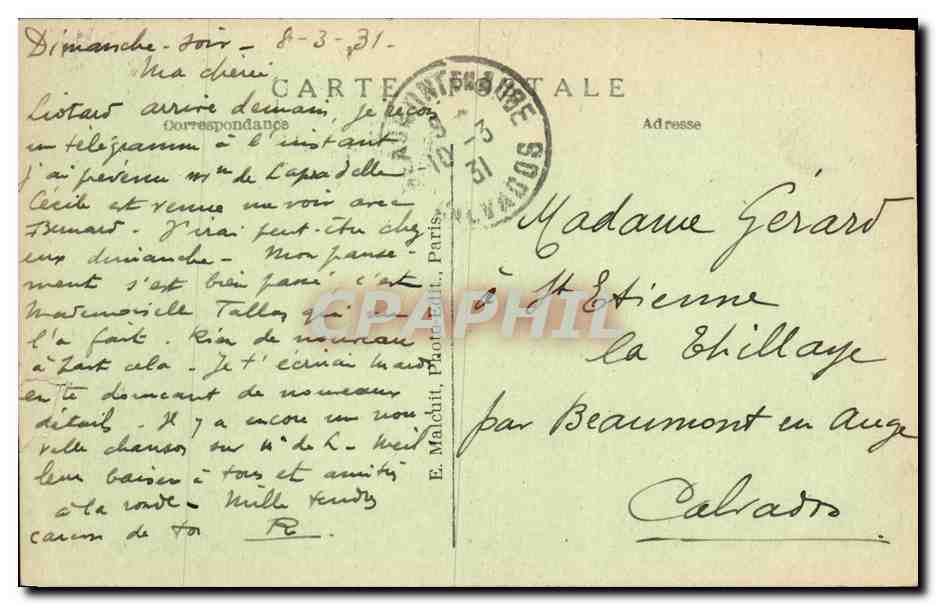 Dimanche-soir - 8-3-31.
Ma chérie
CARTE POSTALE
Liotard arrive demain, je reçois
Correspondance
un télégramme à l'instant
j'ai prévenu Mme de Lapradelle
Cécile est venue me voir avec
Bernard. J'irai peut-être chez
eux dimanche - Mon panse-
ment s'est bien passé c'est
Mademoiselle qui me
l'a fait. Rien de nouveau
à part cela. Je t'écrirai mardi
en te donnant de nouveaux
détails. Il y a encore une nou-
velle chanson sur Mr de L -
baisers à tous et amitiés
à la ronde - Mille tendres
de toi R.
E. Malcuit, Photo-Edit., Paris
BEAUMONT EN AUGE
CALVADOS
10 -3
31
Adresse
Madame Gérard
à St Etienne
la Thillaye
par Beaumont en Auge
Calvados
CPAPHIL